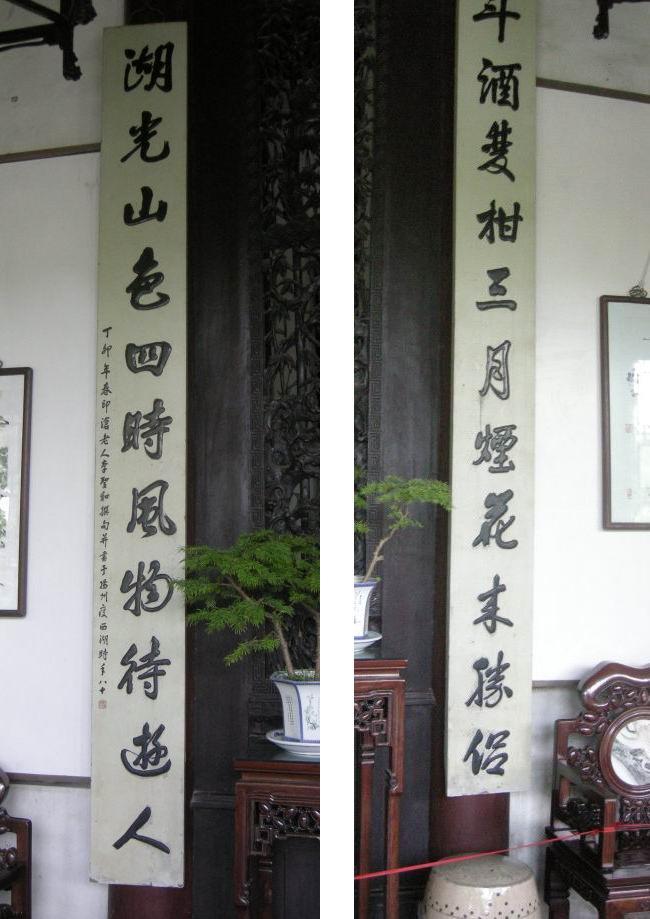 斗酒雙柑三月煙花來勝侶
湖光山色四時風物待遊人
丁卯年春印滄老人李聖和撰句并書于揚州瘦西湖時年八十